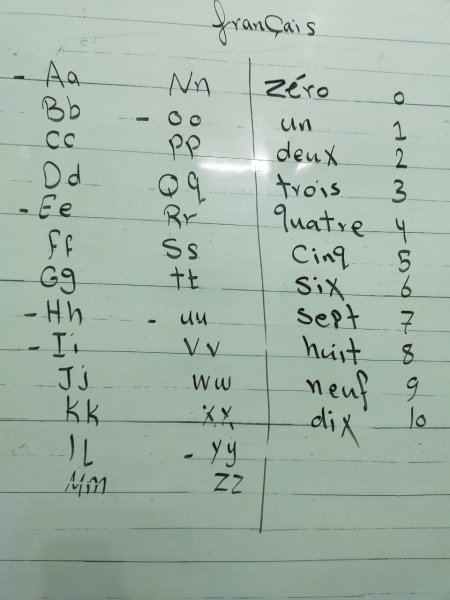 franÇais
- Aa
Bb
CC
Dd
- Ee
ff
Gg
- Hh
- Ii
Jj
KK
lL
Mm
Nn
- oo
PP
Qq
Rr
Ss
tt
- uu
Vv
ww
xx
- yy
ZZ
zéro 0
un 1
deux 2
trois 3
quatre 4
Cinq 5
six 6
sept 7
huit 8
neuf 9
dix 10